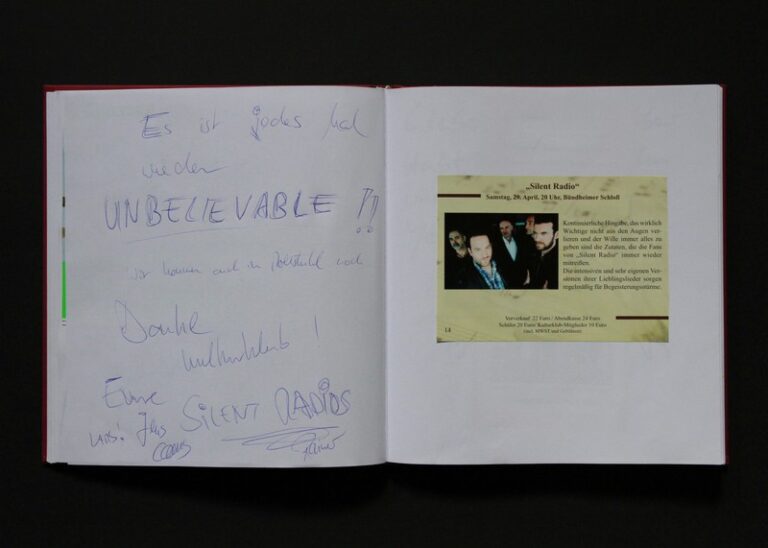 Es ist jedes Mal
wieder
UNBELIEVABLE !!
wir kommen auch im Rollstuhl noch
Danke
Kulturklub!
Eure
SILENT RADIOS
Jens
„Silent Radio“
Samstag, 20. April, 20 Uhr, Bündheimer Schloß
Kontinuierliche Hingabe, das wirklich
Wichtige nicht aus den Augen ver-
lieren und der Wille immer alles zu
geben sind die Zutaten, die die Fans
von „Silent Radio“ immer wieder
mitreißen.
Die intensiven und sehr eigenen Ver-
sionen ihrer Lieblingslieder sorgen
regelmäßig für Begeisterungsstürme.
Vorverkauf 22 Euro / Abendkasse 24 Euro
Schüler 20 Euro/ Kulturklub-Mitglieder 19 Euro
(incl. MWST und Gebühren)
14